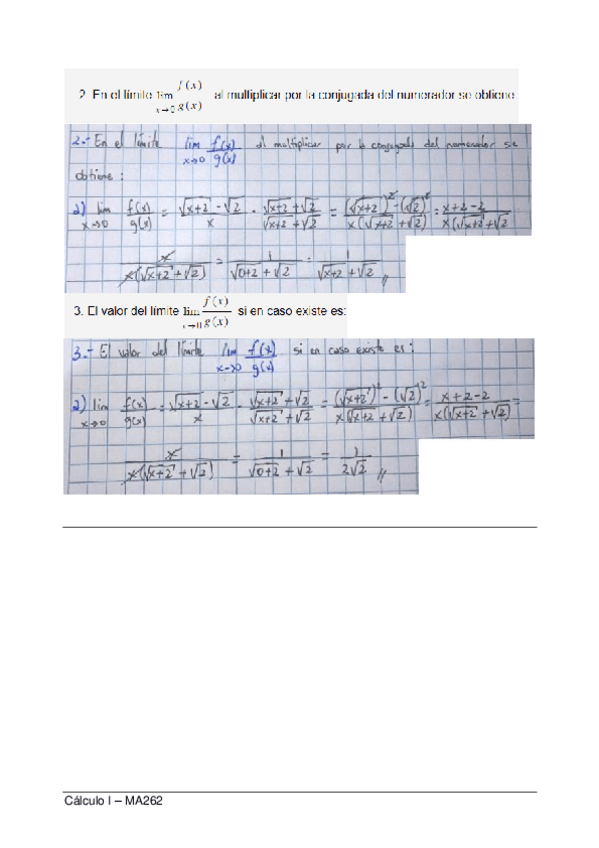 2. En el límite lim x→0 f(x)/g(x) al multiplicar por la conjugada del numerador se obtiene
2.- En el límite lim x→0 f(x)/g(x) al multiplicar por la conjugada del numerador se
obtiene :
2) lim x→0 f(x)/g(x) = √x+2 - √2 / x · √x+2 + √2 / √x+2 + √2 = (√x+2)² - (√2)² / x(√x+2 + √2) = x+2-2 / x(√x+2 + √2
x / x(√x+2 + √2) = 1 / √0+2 + √2 = 1 / √x+2 + √2 //
3. El valor del límite lim x→0 f(x)/g(x) si en caso existe es:
3.- El valor del límite lim x→0 f(x)/g(x) si en caso existe es :
2) lim x→0 f(x)/g(x) = √x+2 - √2 / x · √x+2 + √2 / √x+2 + √2 = (√x+2)² - (√2)² / x(√x+2 + √2) = x+2-2 / x(√x+2 + √2) =
x / x(√x+2 + √2) = 1 / √0+2 + √2 = 1 / 2√2 //
Cálculo I – MA262